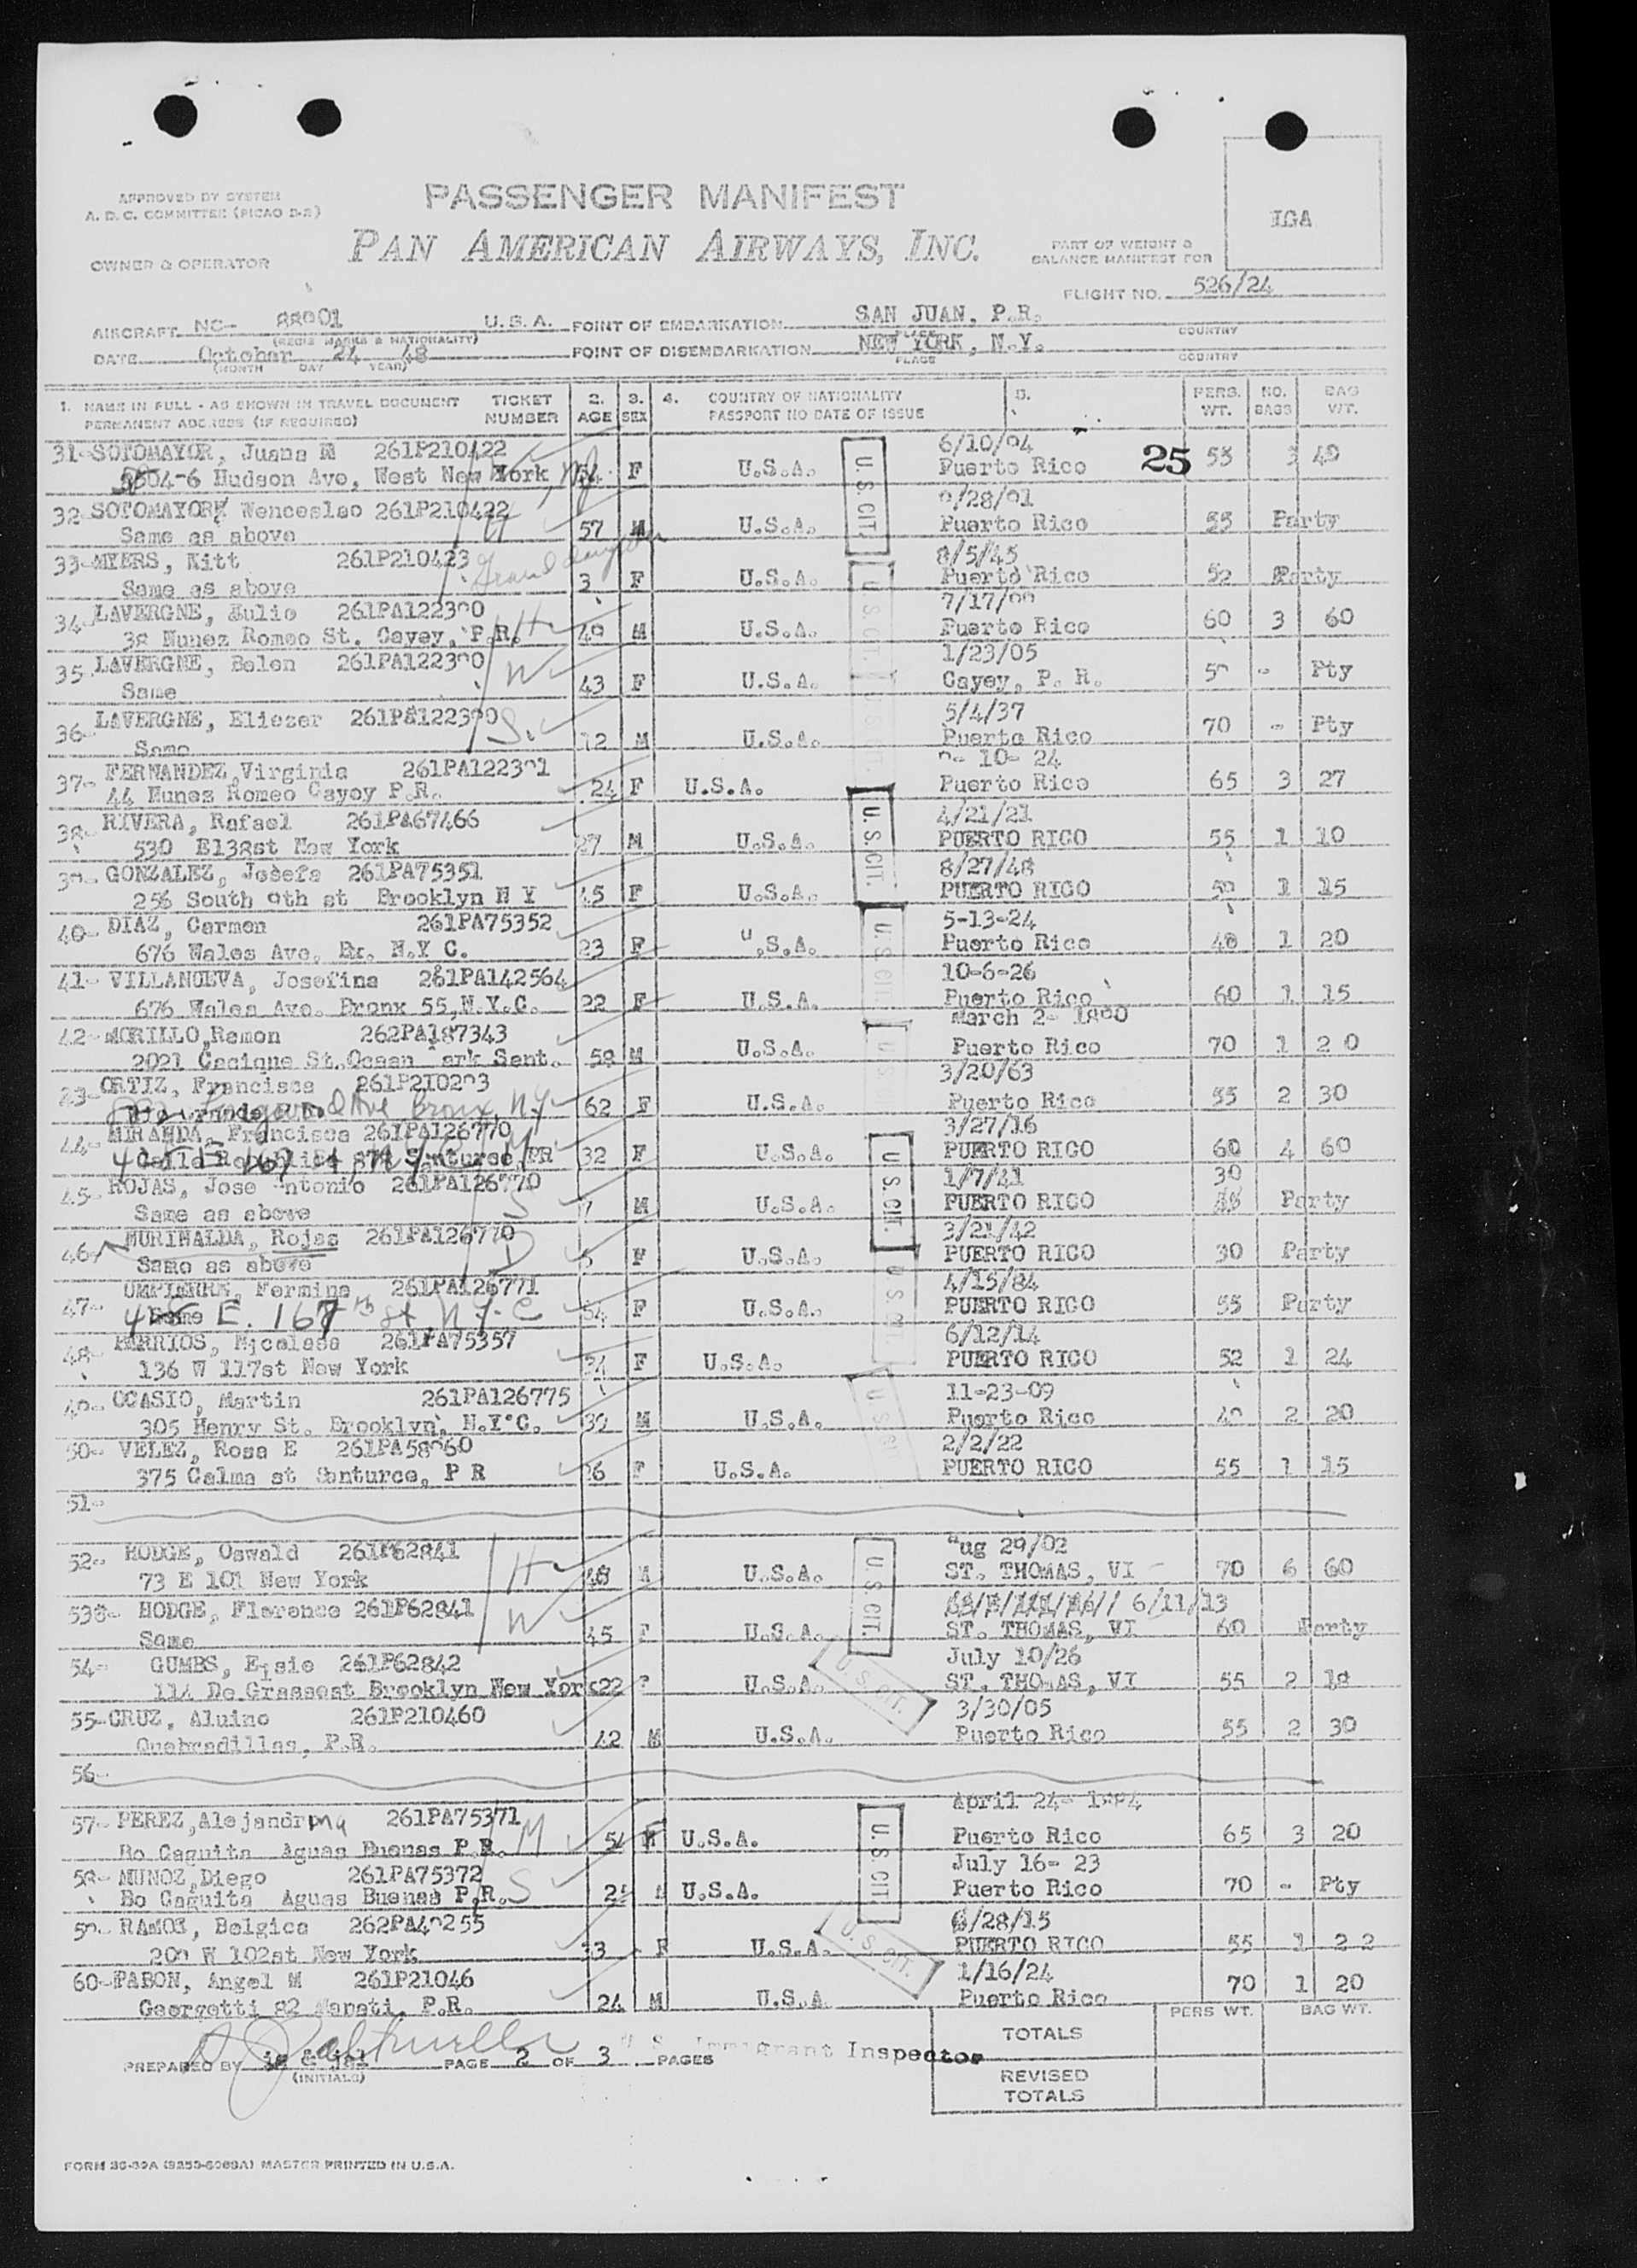 APPROVED BY SYSTEM
A. D. C. COMMITTEE (PICAO D-2)
OWNER & OPERATOR
PASSENGER MANIFEST
PAN AMERICAN AIRWAYS, INC.
LGA
PART OF WEIGHT &
BALANCE MANIFEST FOR
FLIGHT NO. 526/24
AIRCRAFT NC- U.S.A. POINT OF EMBARKATION SAN JUAN, P.R.
(REGIS MARKS & NATIONALITY) PLACE COUNTRY
DATE October 24 48 POINT OF DISEMBARKATION NEW YORK, N.Y.
(MONTH DAY YEAR) PLACE COUNTRY
1. NAME IN FULL - AS SHOWN IN TRAVEL DOCUMENT TICKET 2. 3. 4. COUNTRY OF NATIONALITY 5. PERS. NO. BAG
PERMANENT ADDRESS (IF REQUIRED) NUMBER AGE SEX PASSPORT NO DATE OF ISSUE WT. BAGS WT.
31- SOTOMAYOR, Juana M 261P210422 6/10/94
5504-6 Hudson Ave, West New York, NJ 54 F U.S.A. Puerto Rico 25 53 3 49
32- SOTOMAYOR, Wenceslao 261P210422 H 9/28/91
Same as above 57 M U.S.A. Puerto Rico 55 Party
33- MYERS, Kitt 261P210423 Grand daughter 8/5/45
Same as above 3 F U.S.A. Puerto Rico 52 Party
34- LAVERGNE, Julio 261PA122390 H 7/17/99
38 Nunez Romeo St. Cayey, P.R. 49 M U.S.A. Puerto Rico 60 3 60
35- LAVERGNE, Belen 261PA122390 W 1/23/05
Same 43 F U.S.A. Cayey, P. R. 59 - Pty
36- LAVERGNE, Eliezer 261PA122390 S. 5/4/37
Same 12 M U.S.A. Puerto Rico 70 - Pty
37- FERNANDEZ, Virginia 261PA122391 10- 24
44 Munez Romeo Cayey P.R. 24 F U.S.A. Puerto Rico 65 3 27
38- RIVERA, Rafael 261PA67466 4/21/21
530 E138st New York 27 M U.S.A. PUERTO RICO 55 1 10
39- GONZALEZ, Josefa 261PA75351 8/27/48
256 South 9th st Brooklyn N Y 45 F U.S.A. PUERTO RICO 59 1 15
40- DIAZ, Carmen 261PA75352 5-13-24
676 Wales Ave. Bx. N.Y C. 23 F U.S.A. Puerto Rico 48 1 20
41- VILLANUEVA, Josefina 261PA142564 10-6-26
676 Wales Ave. Bronx 55, N.Y.C. 22 F U.S.A. Puerto Rico 60 1 15
42- MORILLO, Ramon 262PA187343 March 2- 1890
2021 Cacique St. Ocean ark Sant. 58 M U.S.A. Puerto Rico 70 1 2 0
23- ORTIZ, Francisca 261P210293 3/20/63
Ave Bronx, N.Y 62 F U.S.A. Puerto Rico 55 2 30
44- MIRANDA, Francisca 261PA126770 M. 3/27/16
Calle Republica Santurce PR 32 F U.S.A. PUERTO RICO 60 4 60
45- ROJAS, Jose Antonio 261PA126770 S 1/7/41 30
Same as above 7 M U.S.A. PUERTO RICO Party
46- MURINALDA, Rojas 261PA126770 D 3/21/42
Same as above F U.S.A. PUERTO RICO 30 Party
47- UMPIERRE, Fermina 261PA126771 4/15/84
E. 167th st N.Y.C 54 F U.S.A. PUERTO RICO 55 Party
48- BERRIOS, Nicolasa 261PA75357 6/12/14
136 W 117st New York 34 F U.S.A. PUERTO RICO 52 1 24
49- OCASIO, Martin 261PA126775 11-23-09
305 Henry St. Brooklyn, N.Y.C. 39 M U.S.A. Puerto Rico 49 2 20
50- VELEZ, Rosa E 261PA58960 2/2/22
375 Calma st Santurce, P R 26 F U.S.A. PUERTO RICO 55 1 15
51-
52- HODGE, Oswald 261P62841 H Aug 29/02
73 E 101 New York 46 M U.S.A. ST. THOMAS, VI 70 6 60
538- HODGE, Florence 261P62841 W 6/11/13
Same 45 F U.S.A. ST. THOMAS, VI 60 Party
54- GUMBS, Elsie 261P62842 July 10/26
114 De Grassest Brooklyn New York 22 F U.S.A. ST. THOMAS, VI 55 2 18
55- CRUZ, Aluino 261P210460 3/30/05
Quebradillas, P.R. 42 M U.S.A. Puerto Rico 55 2 30
56-
57- PEREZ, Alejandrina 261PA75371 M April 24- 1894
Bo Caguita Aguas Buenas P.R. 54 F U.S.A. Puerto Rico 65 3 20
58- MUNOZ, Diego 261PA75372 S July 16- 23
Bo Caguita Aguas Buenas P.R. 25 M U.S.A. Puerto Rico 70 - Pty
59- RAMOS, Belgica 262PA49255 6/28/15
209 W 102st New York 33 F U.S.A. PUERTO RICO 55 1 2 2
60- PABON, Angel M 261P21046 1/16/24
Georgetti 82 Manati, P.R. 24 M U.S.A Puerto Rico 70 1 20
U. S. CIT.
U. S. CIT.
U. S. CIT.
U. S. CIT.
U. S. CIT.
U. S. CIT.
U. S. CIT.
U. S. CIT.
U. S. CIT.
PERS WT. BAG WT.
TOTALS
U S Immigrant Inspector
PREPARED BY PAGE 2 OF 3 PAGES
(INITIALS)
REVISED
TOTALS
FORM 36-39A (9253-6069A) MASTER PRINTED IN U.S.A.